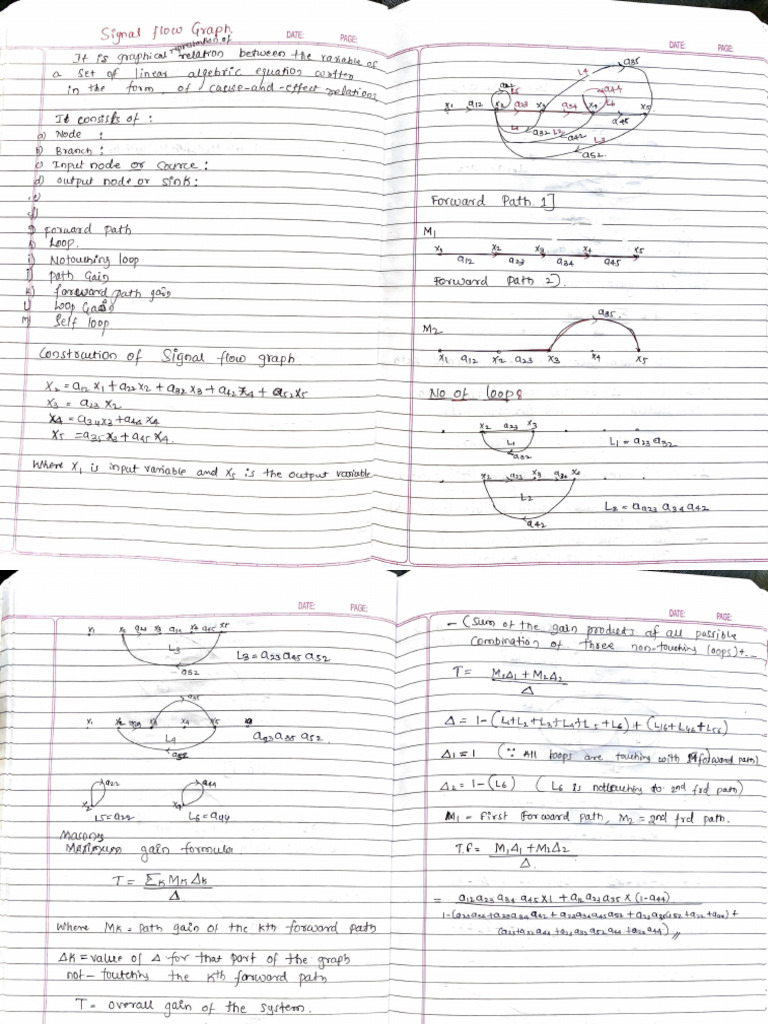 Signal flow Graph.
DATE: PAGE:
representation of
It is graphical relation between the variable of
a set of linear algebric equation
in the form of cause-and-effect relations
It consists of :
a) Node :
b) Branch :
c) Input node or source :
d) output node or sink :
e)
f)
g) forward path
h) Loop.
i) Notouching loop
j) path Gain
k) forward path gain
l) Loop Gain
m) Self loop
Construction of Signal flow graph
X2 = a12 X1 + a22 X2 + a32 X3 + a42 X4 + a52 X5
X3 = a23 X2
X4 = a34 X3 + a44 X4
X5 = a35 X3 + a45 X4.
Where X1 is input variable and X5 is the output variable
DATE: PAGE:
a35
L4
a22 L5 a44
x1 a12 x2 a23 x3 a34 x4 L6 x5
L1 a32 L2 a42 a45
L3
a52
Forward Path 1]
M1
x1 x2 x3 x4 x5
a12 a23 a34 a45
Forward Path 2).
a35.
M2
x1 a12 x2 a23 x3 x4 x5
No of loops
x2 a23 x3
L1 L1 = a23 a32
a32
x2 a23 x3 a34 x4
L2
L2 = aa23 a34 a42
a42
DATE: PAGE:
x1 x2 a23 x3 a34 x4 a45 x5
L3
L3 = a23 a45 a52
a52
a35
x1 x2 a23 x3 x4 x5
L4 a23 a35 a52.
a52
a22 a44
x2 x4
L5 = a22 L6 = a44
Masons
gain formula
T = ΣK MK ΔK
Δ
Where MK = path gain of the kth forward path
ΔK = value of Δ for that part of the graph
not-toutching the Kth forward path
T = overall gain of the system.
DATE: PAGE:
- (sum of the gain products of all possible
combination of three non-touching loops) + --
T = M1Δ1 + M2Δ2
Δ
Δ = 1 - (L1 + L2 + L3 + L4 + L5 + L6) + (L16 + L46 + L56)
Δ1 = 1 (∵ All loops are touching with forward path)
Δ2 = 1 - (L6) (L6 is nottouching to 2nd frd path)
M1 = First Forward path, M2 = 2nd frd path.
T.F = M1Δ1 + M2Δ2
Δ.
= a12 a23 a34 a45 x 1 + a12 a23 a35 x (1 - a44)
1 - (a23 a32 + a23 a34 a42 + a23 a34 a45 a52 + a23 a35 a52 + a22 + a44) +
(a23 a32 a44 + a23 a35 a52 a44 + a22 a44) //